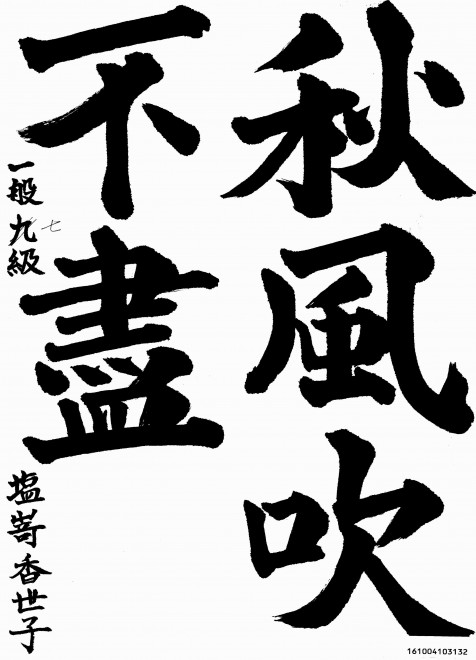 秋風吹
不盡
一般九級
七
塩嵜香世子
161004103132